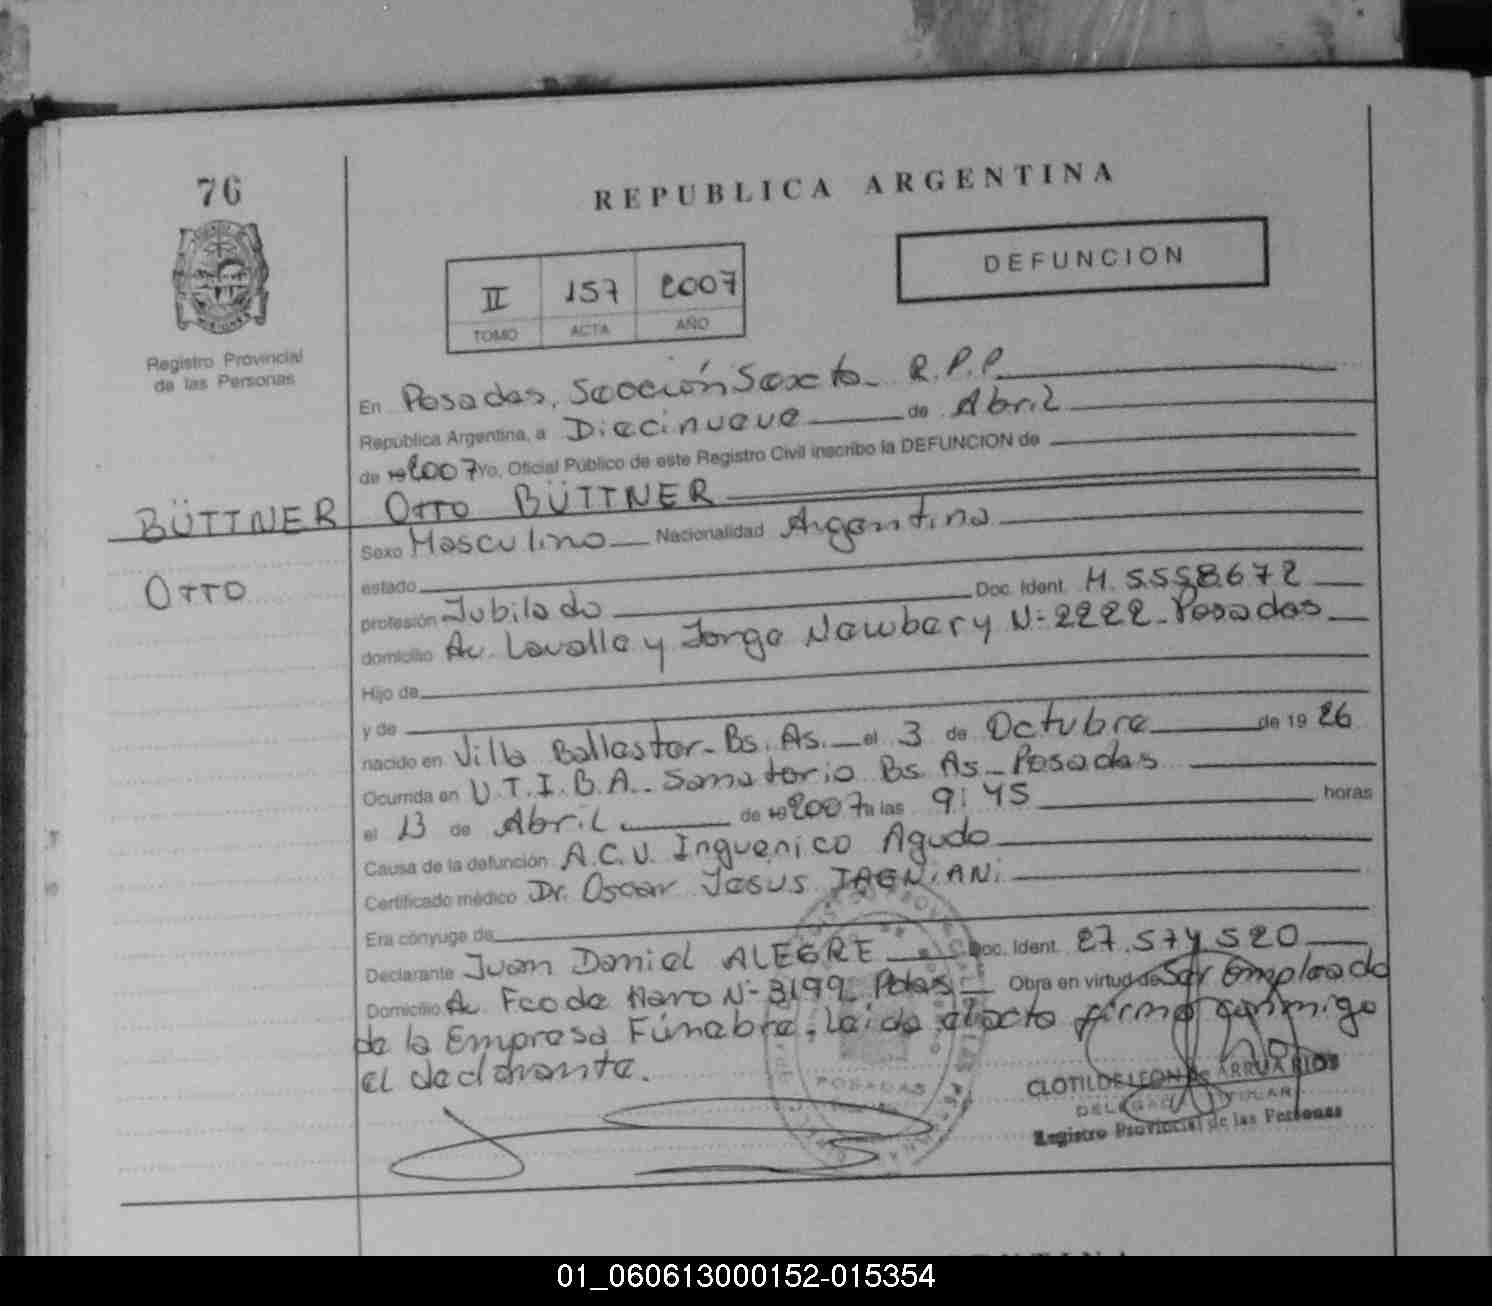 76
REPUBLICA ARGENTINA
DEFUNCION
II 157 2007
TOMO ACTA AÑO
Registro Provincial
de las Personas
En Posadas, Sección Sexta R.P.P.
República Argentina, a Diecinueve de Abril
de 19 2007 Yo, Oficial Público de este Registro Civil inscribo la DEFUNCION de
BÜTTNER OTTO BÜTTNER
Sexo Masculino Nacionalidad Argentina
OTTO
estado Doc. Ident. M. 5.558.672
profesión Jubilado
domicilio Av. Lavalle y Jorge Newbery N- 2222 - Posadas
Hijo de
y de
nacido en Villa Ballester - Bs. As. el 3 de Octubre de 19 26
Ocurrida en U.T.I.B.A. Sanatorio Bs As - Posadas
el 13 de Abril de 19 2007 a las 9:45 horas
Causa de la defunción A.C.V. Inguenico Agudo
Certificado médico Dr. Oscar Jesus
Era cónyuge de
Declarante Juan Daniel ALEGRE Doc. Ident. 27.574.520
Domicilio Av. Fco de Haro N- 3199 - Pdas Obra en virtud de Ser Empleado
de la Empresa Fúnebre, leida el acta firma conmigo
el declarante.
POSADAS
CLOTILDE LEON de ARRUA RIOS
DELEGADA TITULAR
Registro Provincial de las Personas
01_060613000152-015354